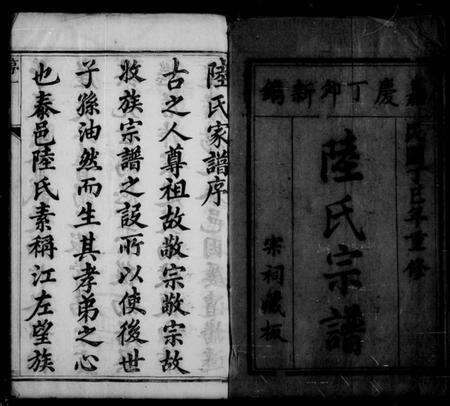 嘉慶丁卯新編
民國丁巳年重修
陸氏宗譜
宗祠藏板
陸氏家譜序
古之人尊祖故敬宗敬宗故
收族宗譜之設所以使後世
子孫油然而生其孝弟之心
也泰邑陸氏素稱江左望族